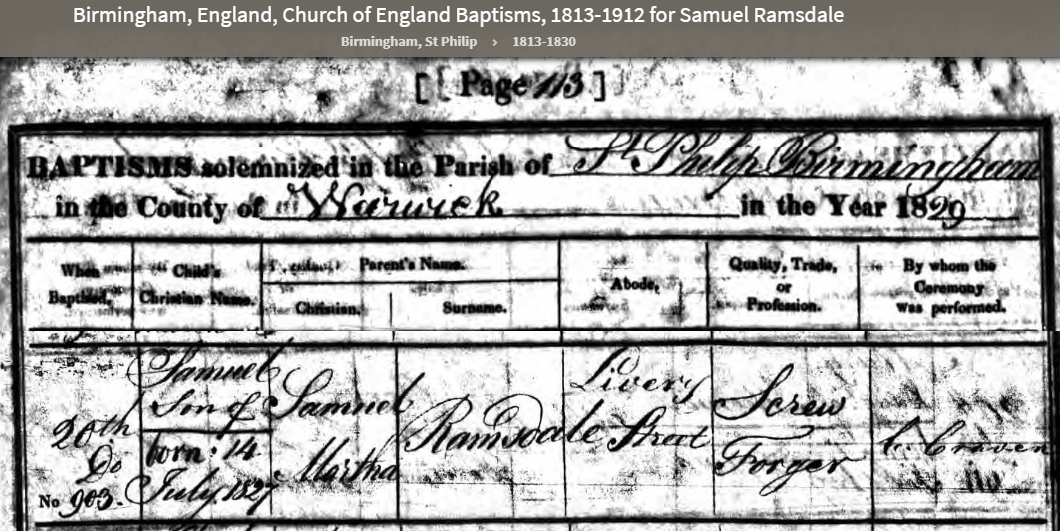 Birmingham, England, Church of England Baptisms, 1813-1912 for Samuel Ramsdale
Birmingham, St Philip › 1813-1830
[ Page 113 ]
BAPTISMS solemnized in the Parish of St Philip Birmingham
in the County of Warwick in the Year 1829
When Baptized,
Child's Christian Name.
Parent's Name.
Christian.
Surname.
Abode,
Quality, Trade, or Profession.
By whom the Ceremony was performed.
20th
Do
No 903.
Samuel
Son of
born 14
July 1827
Samuel
Martha
Ramsdale
Livery
Street
Screw
Forger
C. Craven